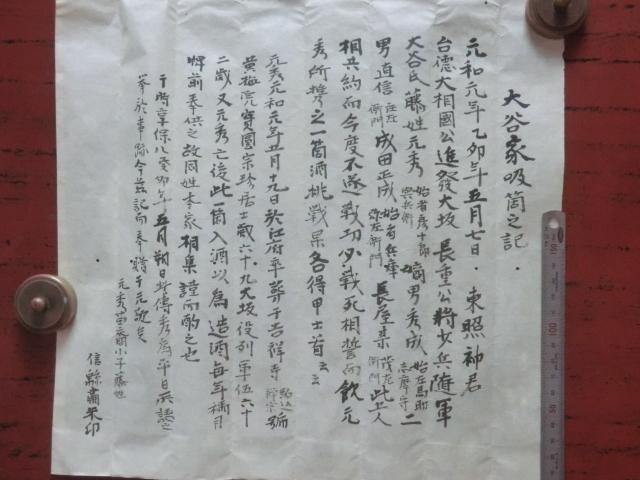 大谷家吸筒之記
元和元年乙卯年五月七日 東照神君
台德大相國公進發大坂 長重公將少兵隨軍
大谷氏藤姓元秀 始者彦十郎 與兵衛 嫡男秀成 始左馬助 志摩守 二
男直信 庄左衛門 成田正成 始者兵庫 弥左衛門 長屋某 茂左衛門 此五人
相共約而今度不遂戰功必戰死相誓而飲元
秀所携之一筒酒挑戰果各得甲士首云云
元秀元和元年五月十九日於江府卒葬于吉祥寺 号
黄梅院寶園宗珍居士歳六十九大坂役列軍伍六十
二歳又元秀亡後此一筒入酒以為造酒每年補月
牌前奉供之故同姓本家相集謹而酌之也
于時享保八癸卯年五月朔日此傳秀為平日所話之
挙於事跡今茲記而奉贈于元敬矣
元秀苗裔小子藤姓
信縣肅朱印